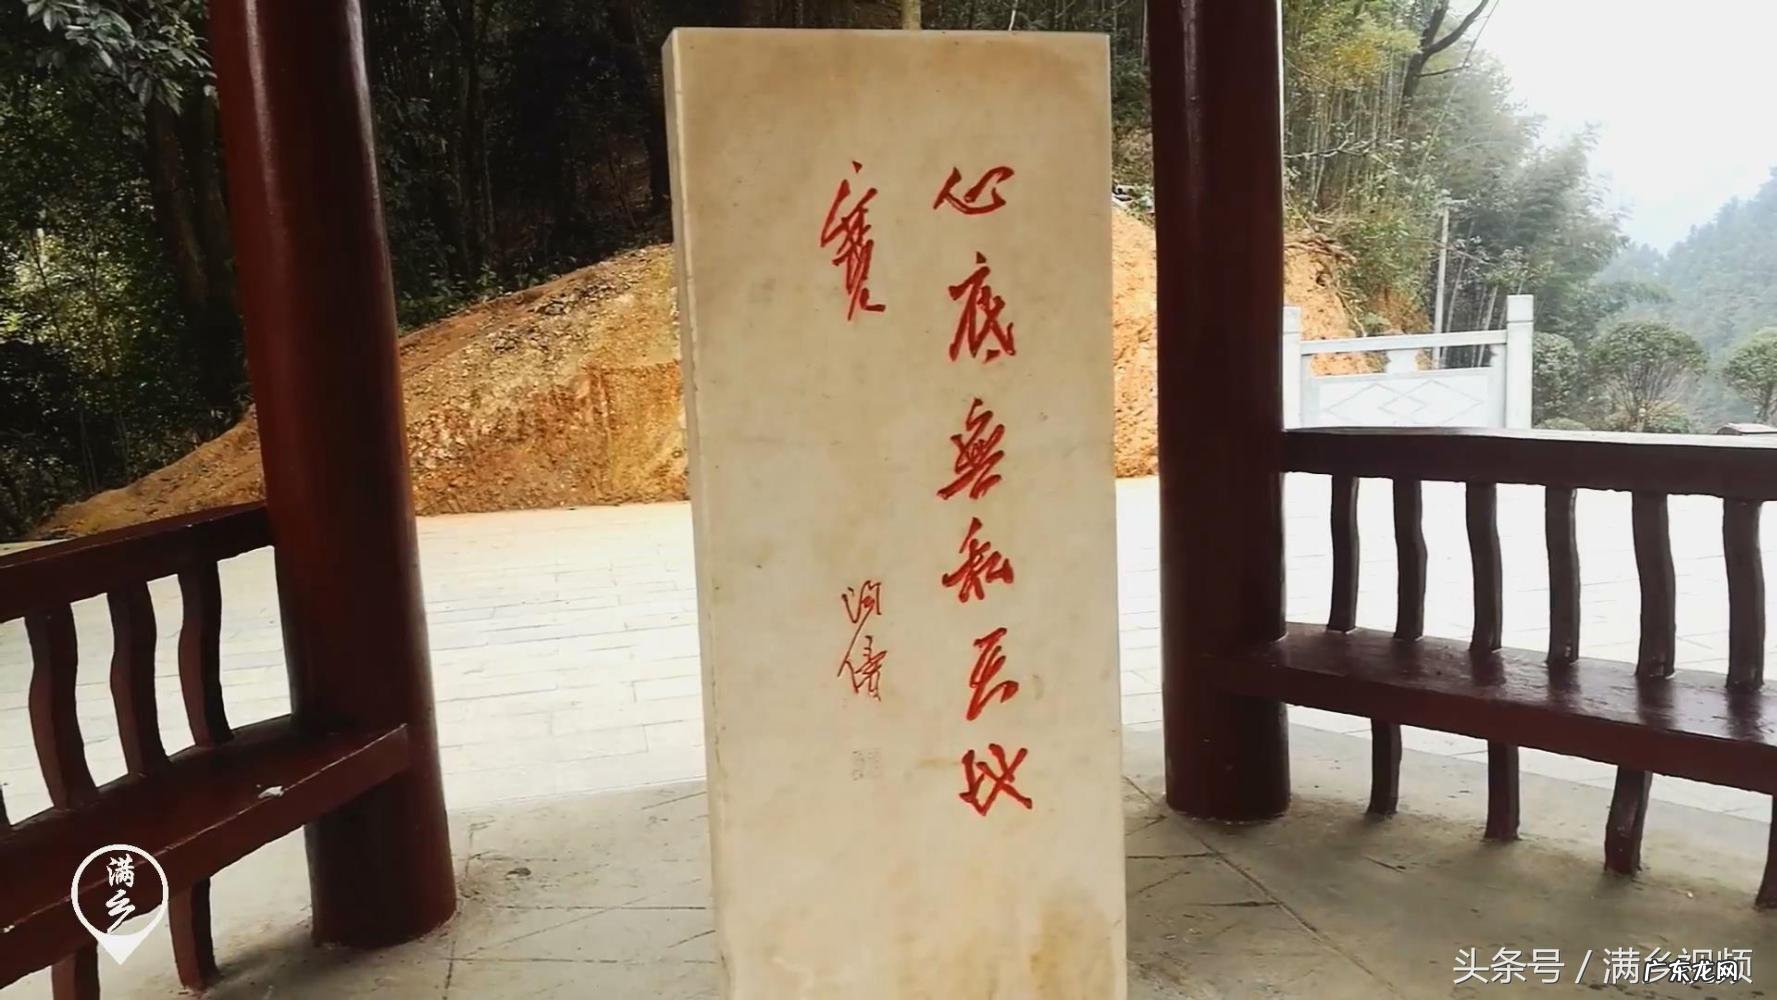 心底無私天地
寬
陶鑄
满
乡
头条号 / 满乡视频
广东龙网